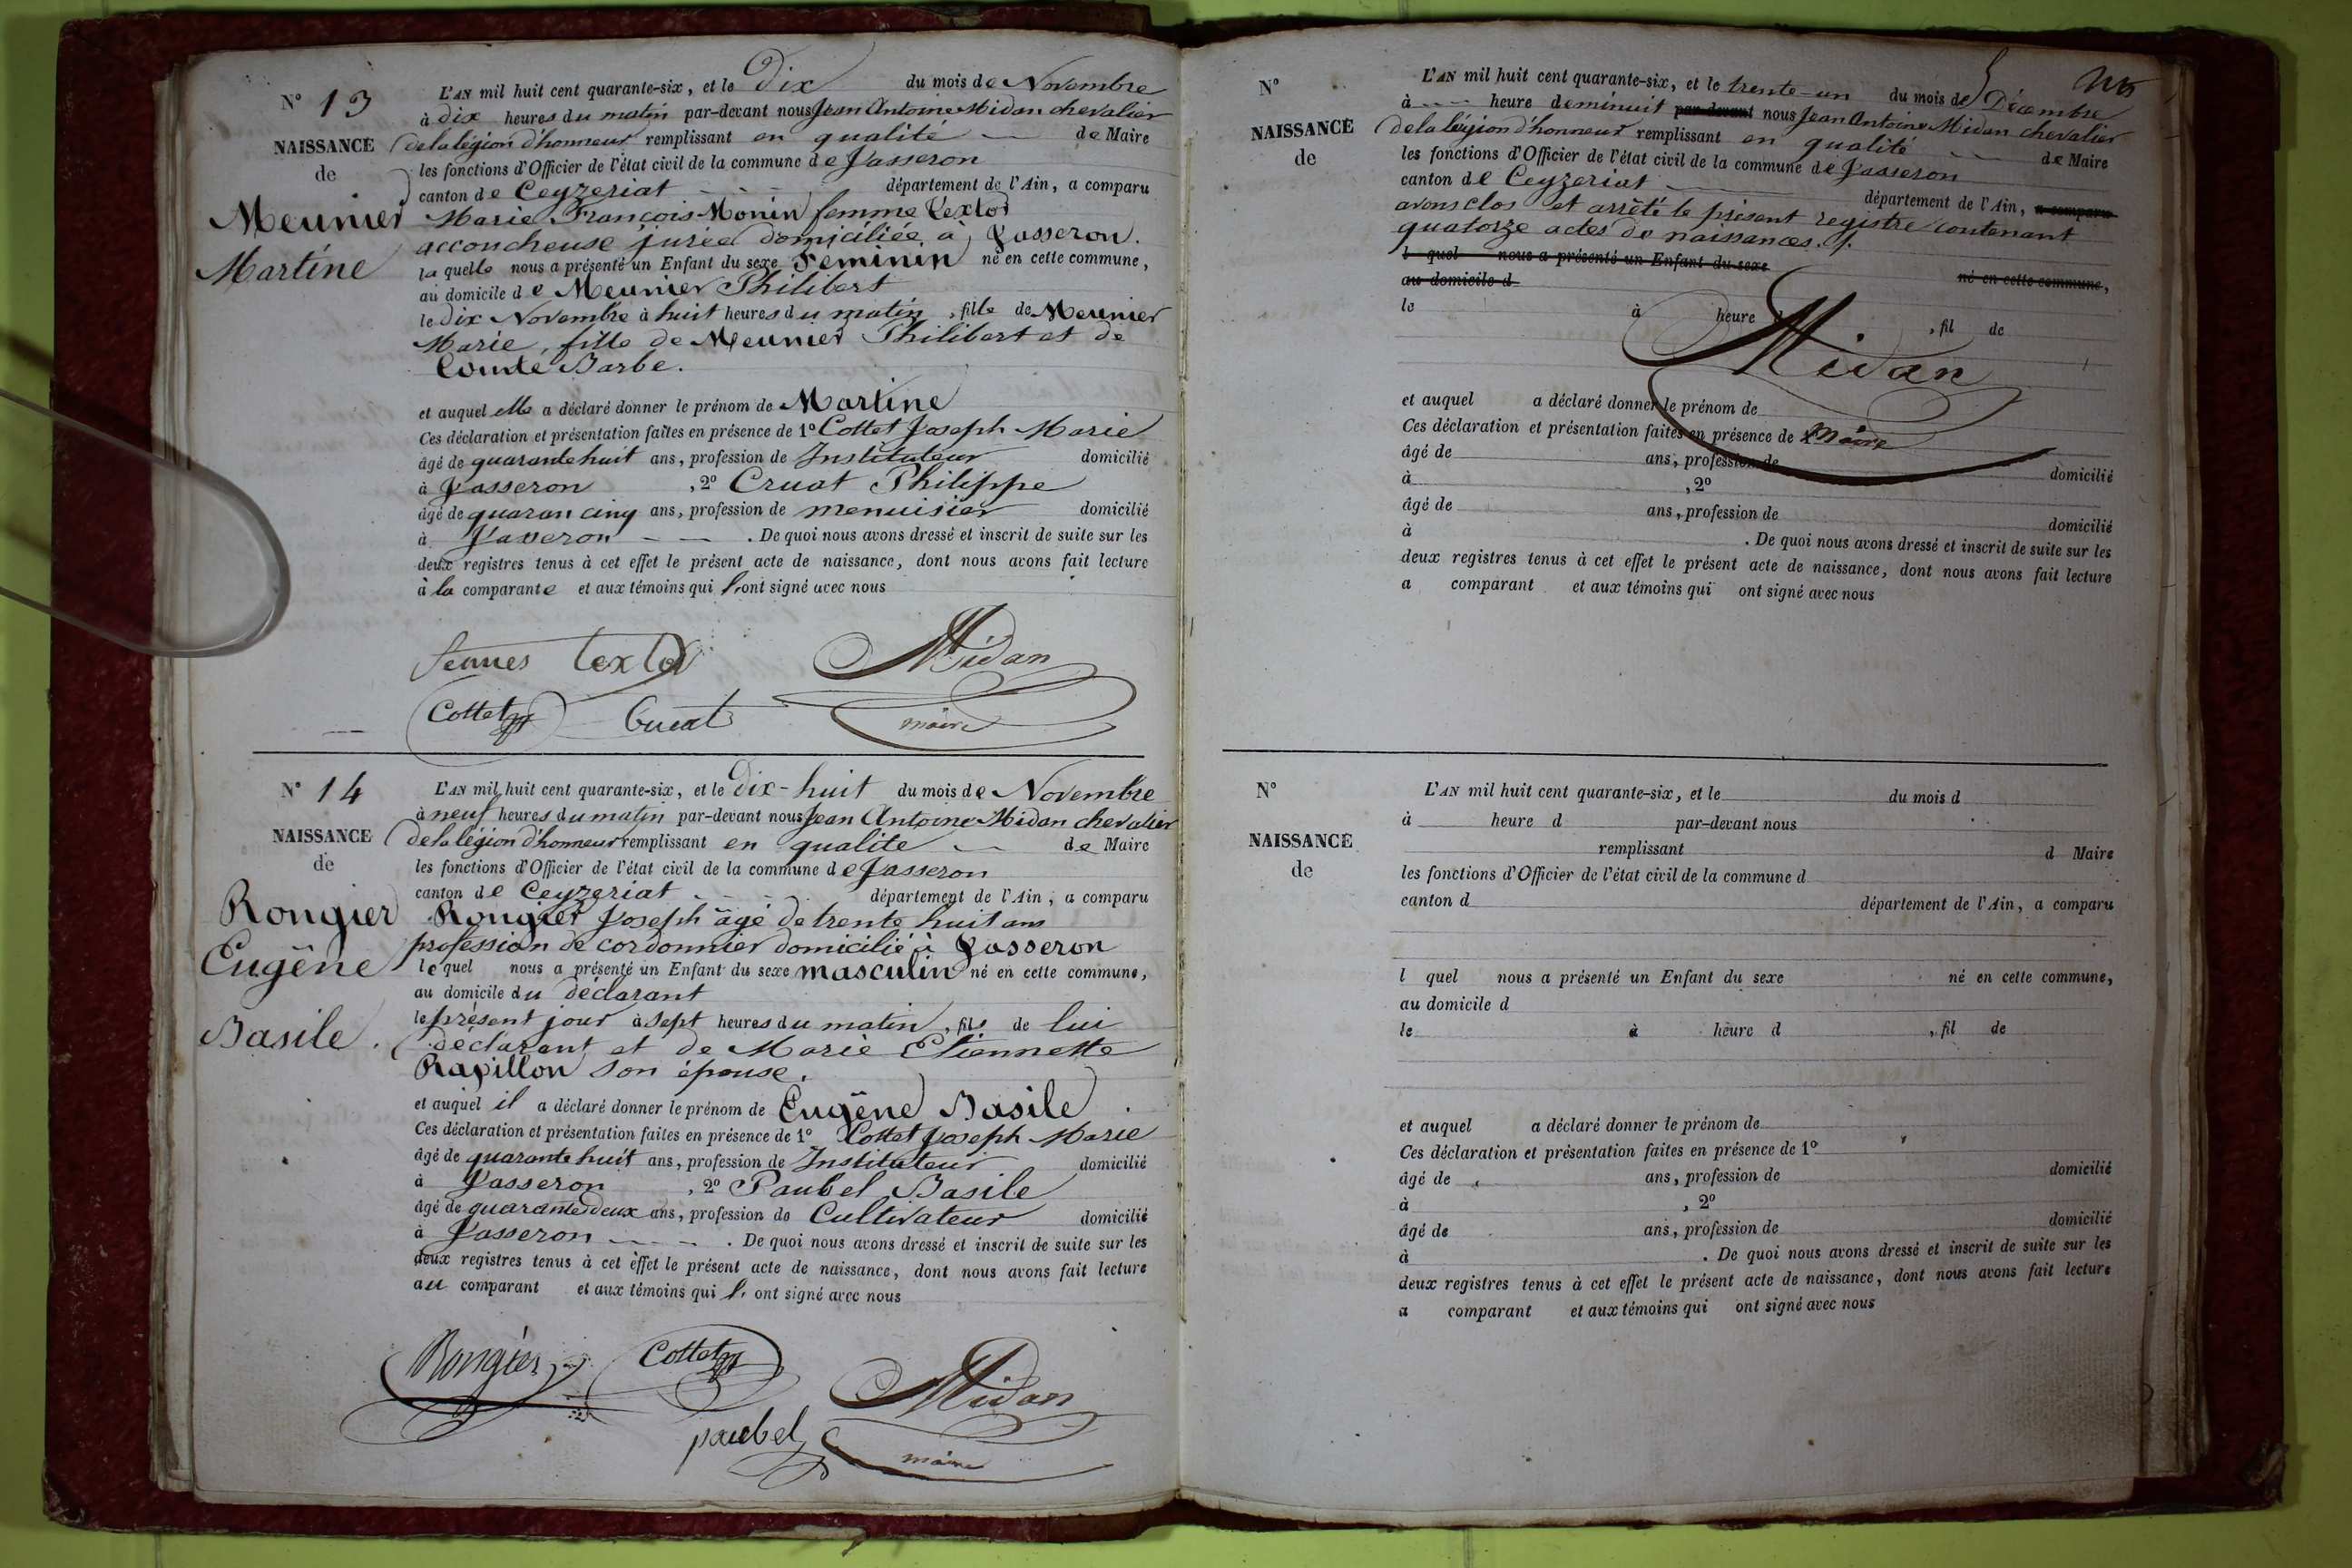 N° 13
NAISSANCE
de
Meunier
Martine
L'AN mil huit cent quarante-six, et le Dix du mois de Novembre
à dix heures du matin par-devant nous Jean Antoine Midan chevalier
de la légion d'honneur remplissant en qualité de Maire
les fonctions d'Officier de l'état civil de la commune de Jasseron
canton de Ceyzeriat département de l'Ain, a comparu
Marie François Monin femme Textor
accoucheuse jurée domiciliée à Jasseron.
la quelle nous a présenté un Enfant du sexe Feminin né en cette commune,
au domicile de Meunier Philibert
le dix Novembre à huit heures du matin, fille de Meunier
Marie, fille de Meunier Philibert et de
Comte Barbe.
et auquel elle a déclaré donner le prénom de Martine
Ces déclaration et présentation faites en présence de 1° Cottet Joseph Marie
âgé de quarante huit ans, profession de Instituteur domicilié
à Jasseron, 2° Cruat Philippe
âgé de quaran cinq ans, profession de menuisier domicilié
à Jasseron - - . De quoi nous avons dressé et inscrit de suite sur les
deux registres tenus à cet effet le présent acte de naissance, dont nous avons fait lecture
à la comparante et aux témoins qui l'ont signé avec nous
femmes textor Midan
Cottet Cruat maire
N° 14
NAISSANCE
de
Rongier
Eugène
Basile.
L'AN mil huit cent quarante-six, et le Dix-huit du mois de Novembre
à neuf heures du matin par-devant nous Jean Antoine Midan chevalier
de la légion d'honneur remplissant en qualité de Maire
les fonctions d'Officier de l'état civil de la commune de Jasseron
canton de Ceyzeriat département de l'Ain, a comparu
Rongier Joseph âgé de trente huit ans
profession de cordonnier domicilié à Jasseron
le quel nous a présenté un Enfant du sexe masculin né en cette commune,
au domicile du déclarant
le présent jour à sept heures du matin, fils de lui
déclarant et de Marie Etiennette
Rapillon son épouse.
et auquel il a déclaré donner le prénom de Eugène Basile
Ces déclaration et présentation faites en présence de 1° Cottet Joseph Marie
âgé de quarante huit ans, profession de Instituteur domicilié
à Jasseron, 2° Paubel Basile
âgé de quarante deux ans, profession de Cultivateur domicilié
à Jasseron - - - . De quoi nous avons dressé et inscrit de suite sur les
deux registres tenus à cet effet le présent acte de naissance, dont nous avons fait lecture
au comparant et aux témoins qui l'ont signé avec nous
Rongier Cottet Midan
paubel maire
N°
NAISSANCE
de
L'AN mil huit cent quarante-six, et le trente-un du mois de Décembre
à - - heure de minuit par-devant nous Jean Antoine Midan chevalier
de la légion d'honneur remplissant en qualité de Maire
les fonctions d'Officier de l'état civil de la commune de Jasseron
canton de Ceyzeriat département de l'Ain, a comparu
avons clos et arrêté le présent registre contenant
quatorze actes de naissances.
l quel nous a présenté un Enfant du sexe né en cette commune,
au domicile d
le à heure d , fil de
Midan
et auquel a déclaré donner le prénom de
Ces déclaration et présentation faites en présence de maire
âgé de ans, profession de domicilié
à , 2°
âgé de ans, profession de domicilié
à . De quoi nous avons dressé et inscrit de suite sur les
deux registres tenus à cet effet le présent acte de naissance, dont nous avons fait lecture
a comparant et aux témoins qui ont signé avec nous
N°
NAISSANCE
de
L'AN mil huit cent quarante-six, et le du mois d
à heure d par-devant nous
remplissant d Maire
les fonctions d'Officier de l'état civil de la commune d
canton d département de l'Ain, a comparu
l quel nous a présenté un Enfant du sexe né en cette commune,
au domicile d
le à heure d , fil de
et auquel a déclaré donner le prénom de
Ces déclaration et présentation faites en présence de 1°
âgé de ans, profession de domicilié
à , 2°
âgé de ans, profession de domicilié
à . De quoi nous avons dressé et inscrit de suite sur les
deux registres tenus à cet effet le présent acte de naissance, dont nous avons fait lecture
a comparant et aux témoins qui ont signé avec nous